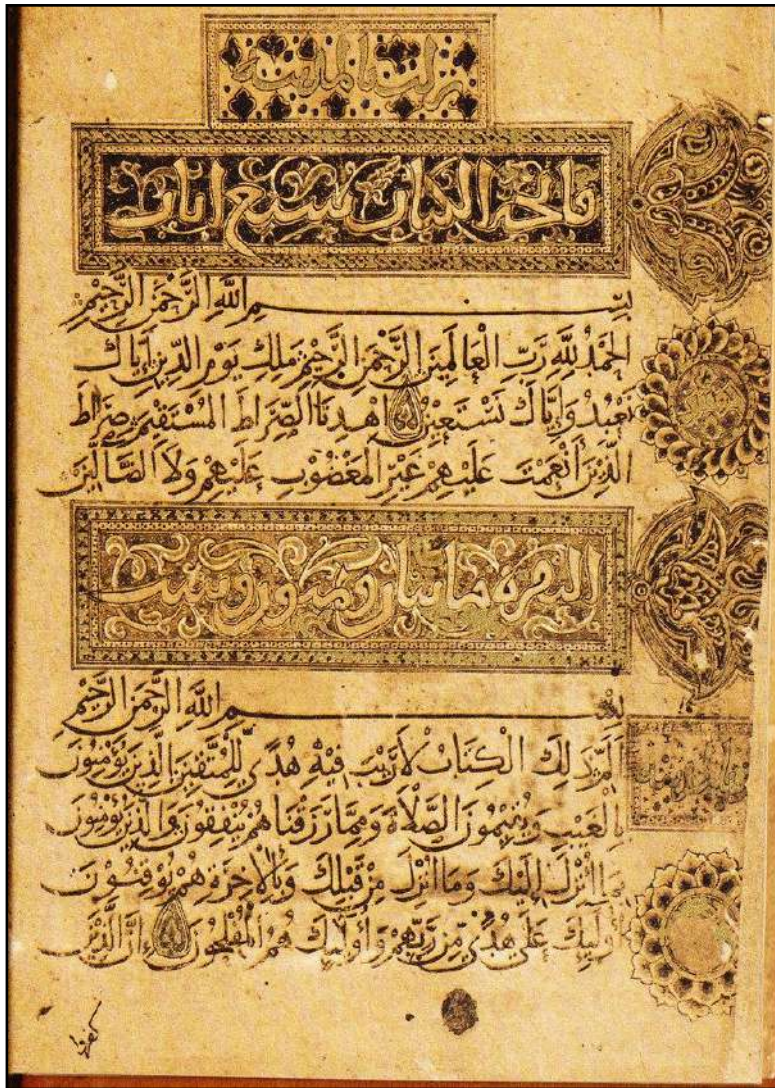 نزلت بالمدينة
فاتحة الكتاب سبع ايات
بِسْمِ اللَّهِ الرَّحْمَنِ الرَّحِيْمِ
الْحَمْدُ لِلَّهِ رَبِّ الْعَالَمِيْنَ الرَّحْمَنِ الرَّحِيْمِ مَلِكِ يَوْمِ الدِّيْنِ إِيَّاكَ
نَعْبُدُ وَإِيَّاكَ نَسْتَعِيْنُ اِهْدِنَا الصِّرَاطَ الْمُسْتَقِيْمَ صِرَاطَ
الَّذِيْنَ أَنْعَمْتَ عَلَيْهِمْ غَيْرِ الْمَغْضُوْبِ عَلَيْهِمْ وَلَا الضَّالِّيْنَ
البقرة مائتان وثمنون وست
بِسْمِ اللَّهِ الرَّحْمَنِ الرَّحِيْمِ
الَمّ ذَلِكَ الْكِتَابُ لَا رَيْبَ فِيْهِ هُدًى لِلْمُتَّقِيْنَ الَّذِيْنَ يُؤْمِنُوْنَ
بِالْغَيْبِ وَيُقِيْمُوْنَ الصَّلَاةَ وَمِمَّا رَزَقْنَاهُمْ يُنْفِقُوْنَ وَالَّذِيْنَ يُؤْمِنُوْنَ
بِمَا أُنْزِلَ إِلَيْكَ وَمَا أُنْزِلَ مِنْ قَبْلِكَ وَبِالْآخِرَةِ هُمْ يُوْقِنُوْنَ
أُولَئِكَ عَلَى هُدًى مِنْ رَبِّهِمْ وَأُولَئِكَ هُمُ الْمُفْلِحُوْنَ إِنَّ الَّذِيْنَ
كفروا